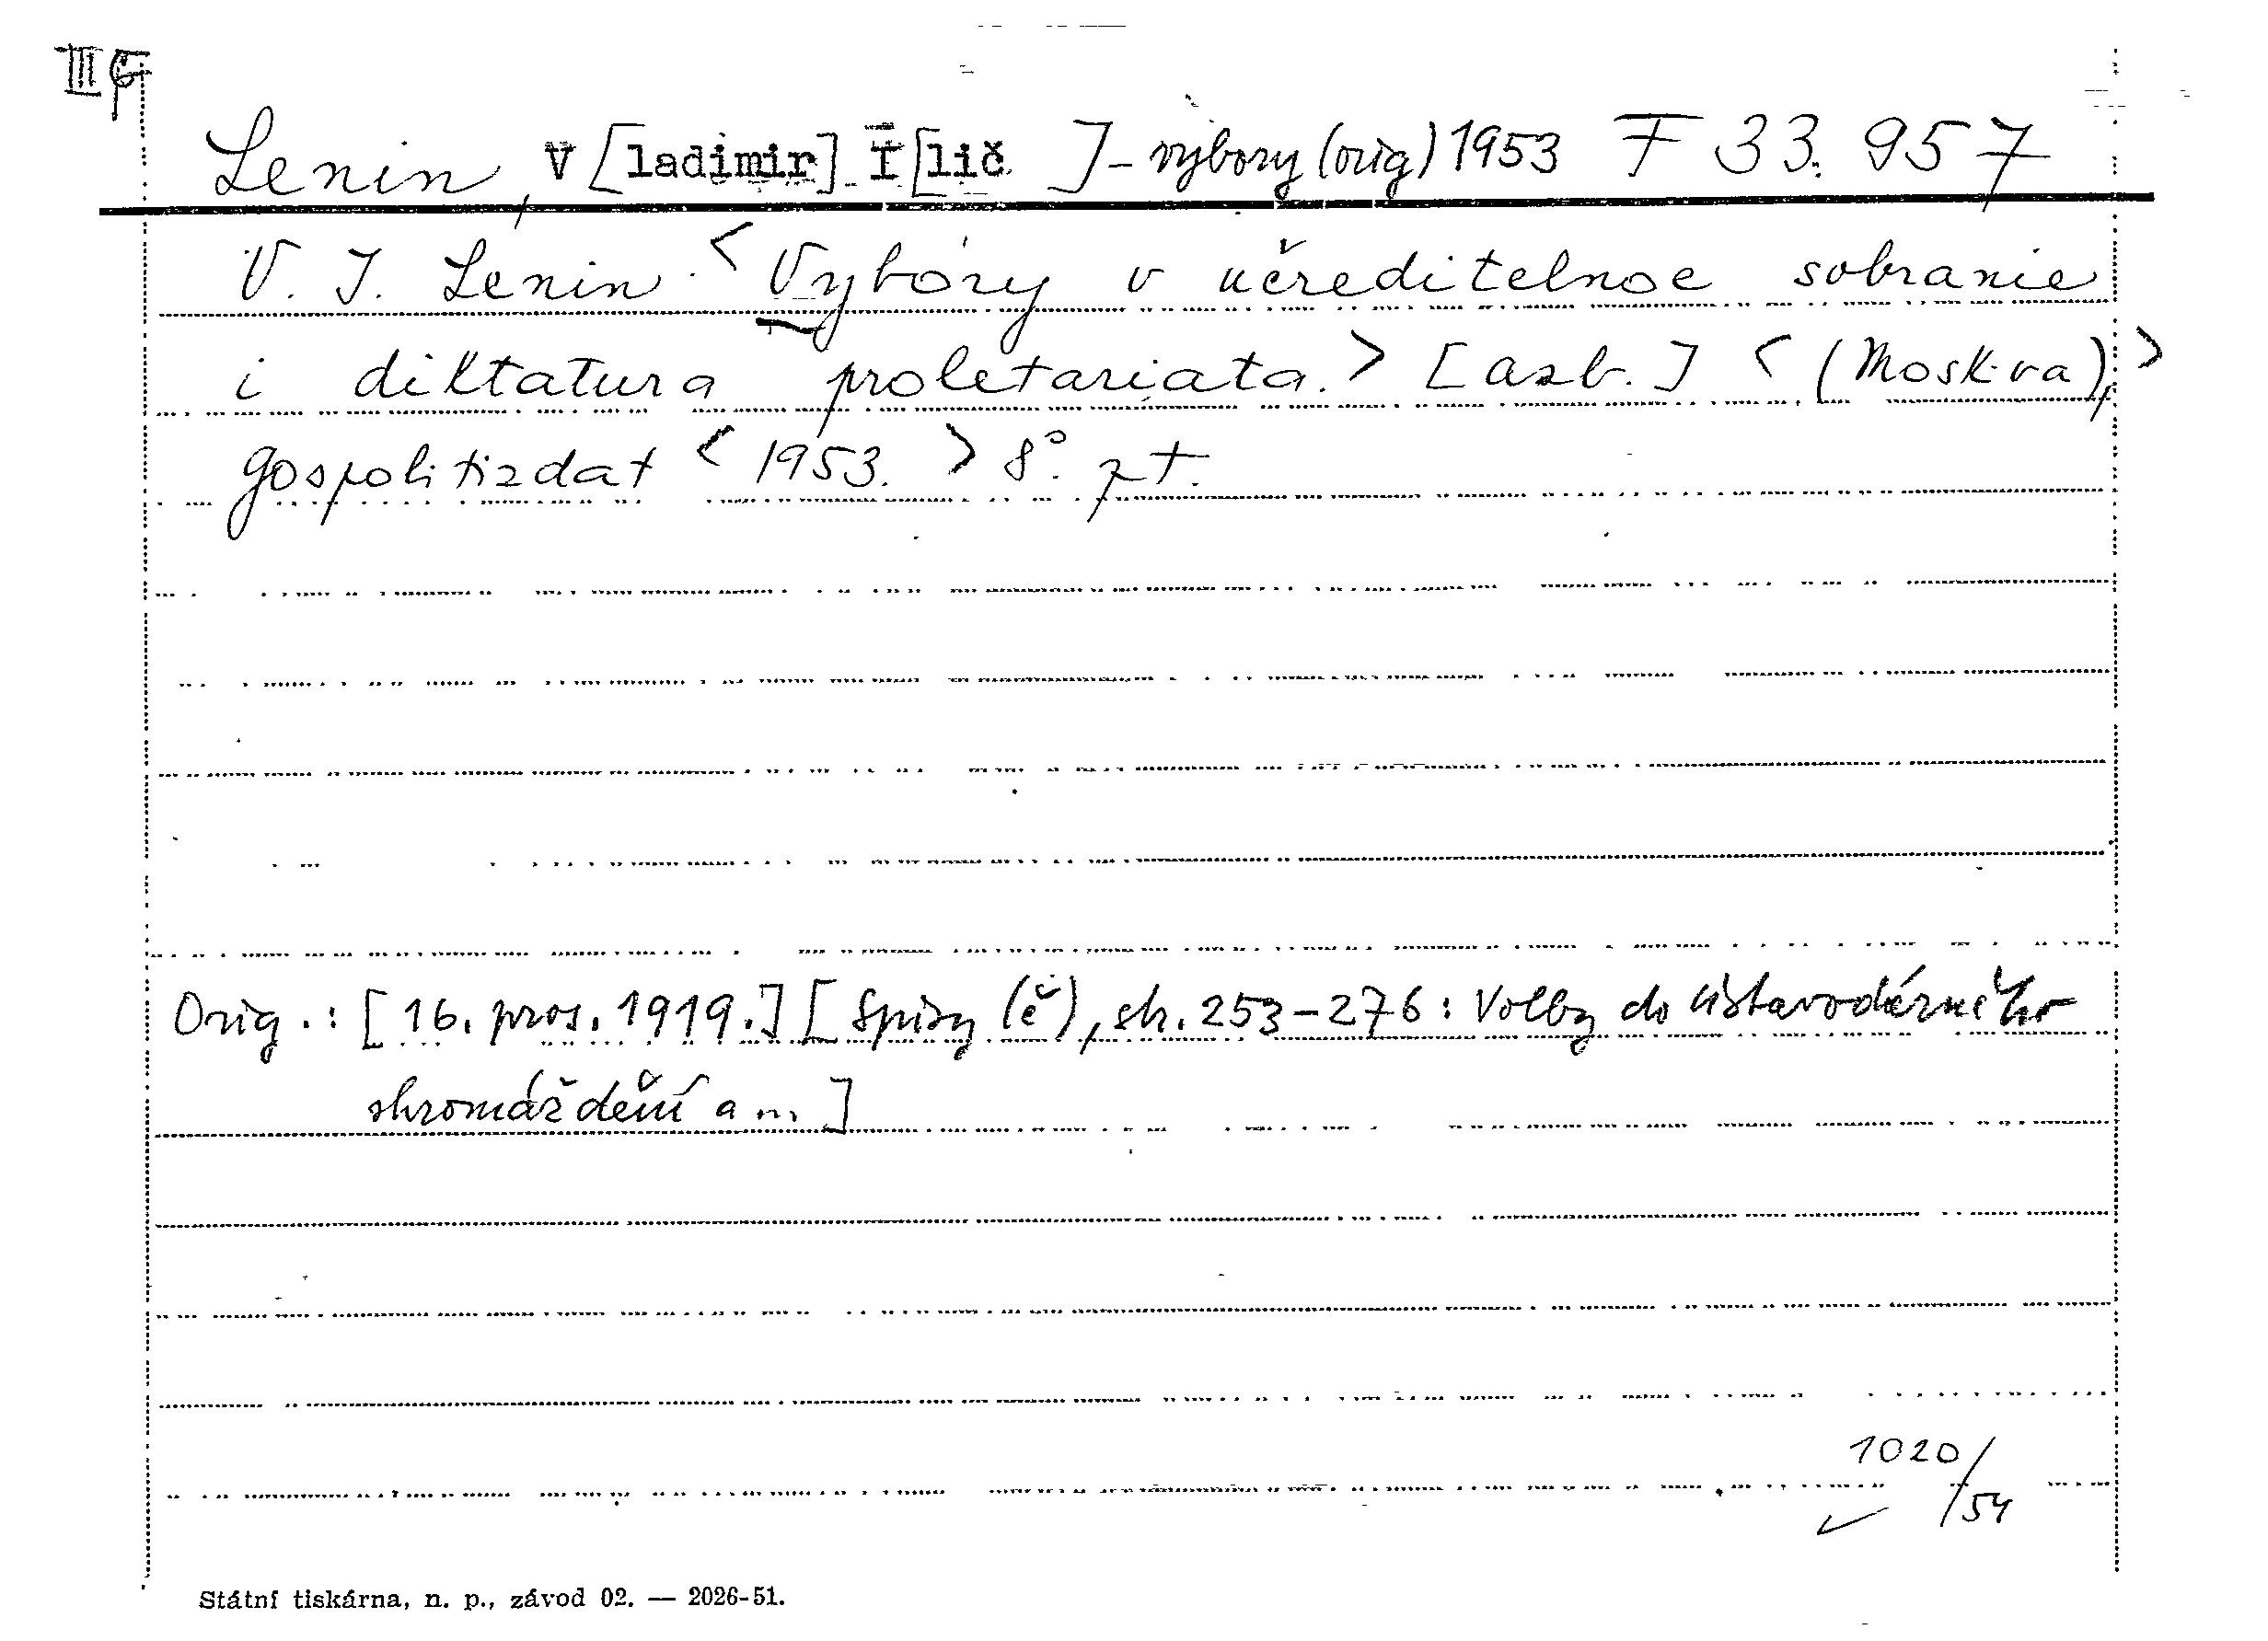 III
Lenin, V[ladimir] I[lič ] – výbory (orig) 1953 F 33.957
V. I. Lenin. < Vybory v učreditelnoe sobranie
i diktatura proletariata. > [azb.] < (Moskva), >
gospolitizdat < 1953. > 8°. zt.
Orig.: [16. pros. 1919.] [Spisy (č), str. 253–276: Volby do Ústavodárného
shromáždění a ... ]
1020/
/54
Státní tiskárna, n. p., závod 02. — 2026-51.